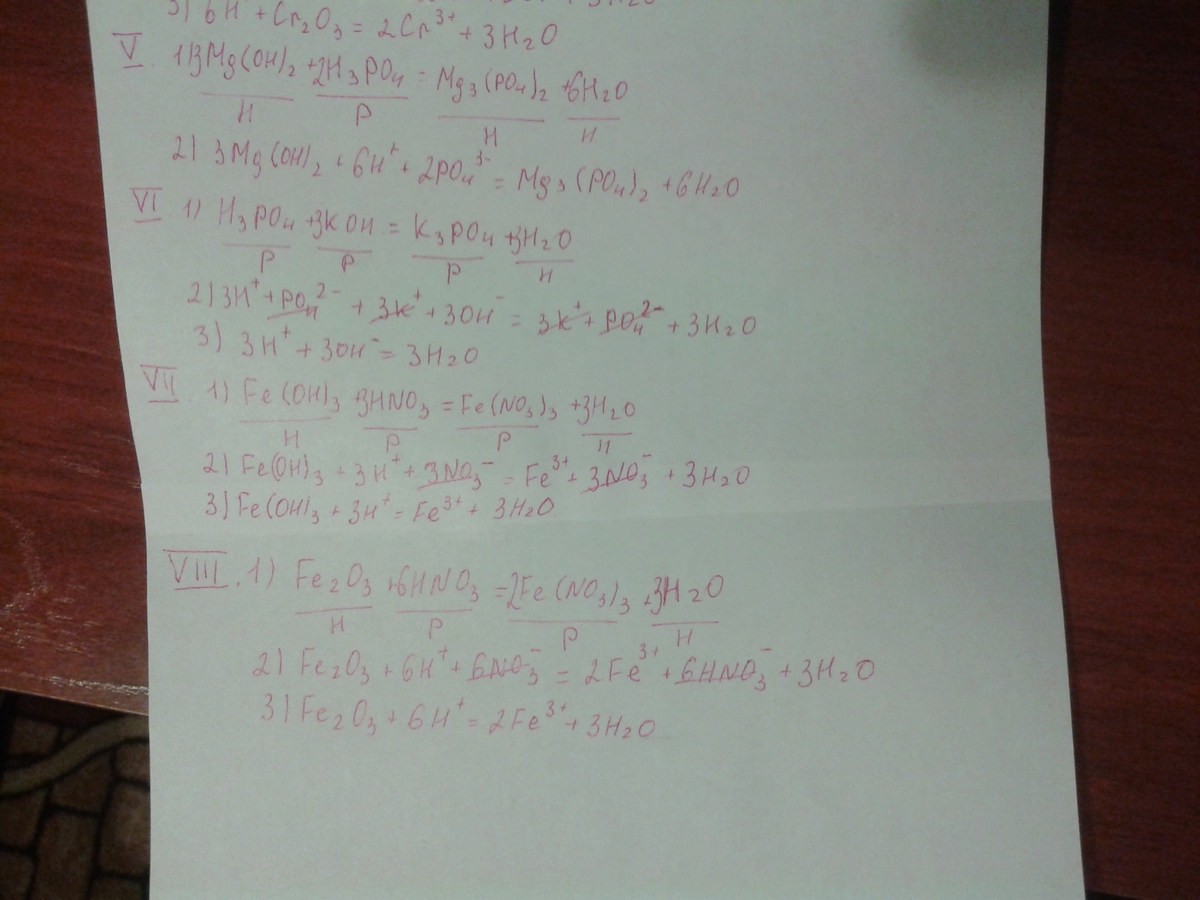 3) 6H + Cr₂O₃ = 2Cr³⁺ + 3H₂O
V. 1) 3Mg(OH)₂ + 2H₃PO₄ = Mg₃(PO₄)₂ + 6H₂O
Н Р Н Н
2) 3Mg(OH)₂ + 6H⁺ + 2PO₄³⁻ = Mg₃(PO₄)₂ + 6H₂O
VI 1) H₃PO₄ + 3KOH = K₃PO₄ + 3H₂O
Р Р Р Н
2) 3H⁺ + PO₄²⁻ + 3K⁺ + 3OH⁻ = 3K⁺ + PO₄²⁻ + 3H₂O
3) 3H⁺ + 3OH⁻ = 3H₂O
VII. 1) Fe(OH)₃ + 3HNO₃ = Fe(NO₃)₃ + 3H₂O
Н Р Р Н
2) Fe(OH)₃ + 3H⁺ + 3NO₃⁻ = Fe³⁺ + 3NO₃⁻ + 3H₂O
3) Fe(OH)₃ + 3H⁺ = Fe³⁺ + 3H₂O
VIII. 1) Fe₂O₃ + 6HNO₃ = 2Fe(NO₃)₃ + 3H₂O
Н Р Р Н
2) Fe₂O₃ + 6H⁺ + 6NO₃⁻ = 2Fe³⁺ + 6HNO₃⁻ + 3H₂O
3) Fe₂O₃ + 6H⁺ = 2Fe³⁺ + 3H₂O